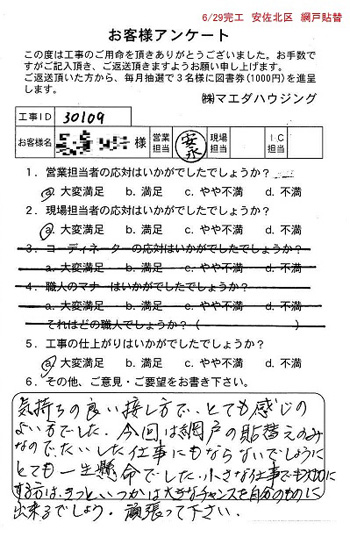 6/29完工 安佐北区 網戸貼替
お客様アンケート
この度は工事のご用命を頂きありがとうございました。お手数で
すがご記入頂き、ご返送頂きますようお願い申し上げます。
ご返送頂いた方から、毎月抽選で3名様に図書券(1000円)を進呈
します。
㈱マエダハウジング
工事ID 30109
お客様名 様 営業担当 安永 現場担当 IC担当
1. 営業担当者の応対はいかがでしたでしょうか?
a. 大変満足 b. 満足 c. やや不満 d. 不満
2. 現場担当者の応対はいかがでしたでしょうか?
a. 大変満足 b. 満足 c. やや不満 d. 不満
3. コーディネーターの応対はいかがでしたでしょうか?
a. 大変満足 b. 満足 c. やや不満 d. 不満
4. 職人のマナーはいかがでしたでしょうか?
a. 大変満足 b. 満足 c. やや不満 d. 不満
それはどの職人でしょうか?( )
5. 工事の仕上がりはいかがでしたでしょうか?
a. 大変満足 b. 満足 c. やや不満 d. 不満
6. その他、ご意見・ご要望をお書き下さい。
気持ちの良い接し方で、とても感じの
よい方でした。今回は網戸の貼替えのみ
なので、たいした仕事にもならないでしょうに
とても一生懸命でした。小さな仕事でも大切に
する方は、きっと、いつかは大きなチャンスを自分のものに
出来るでしょう。頑張って下さい。